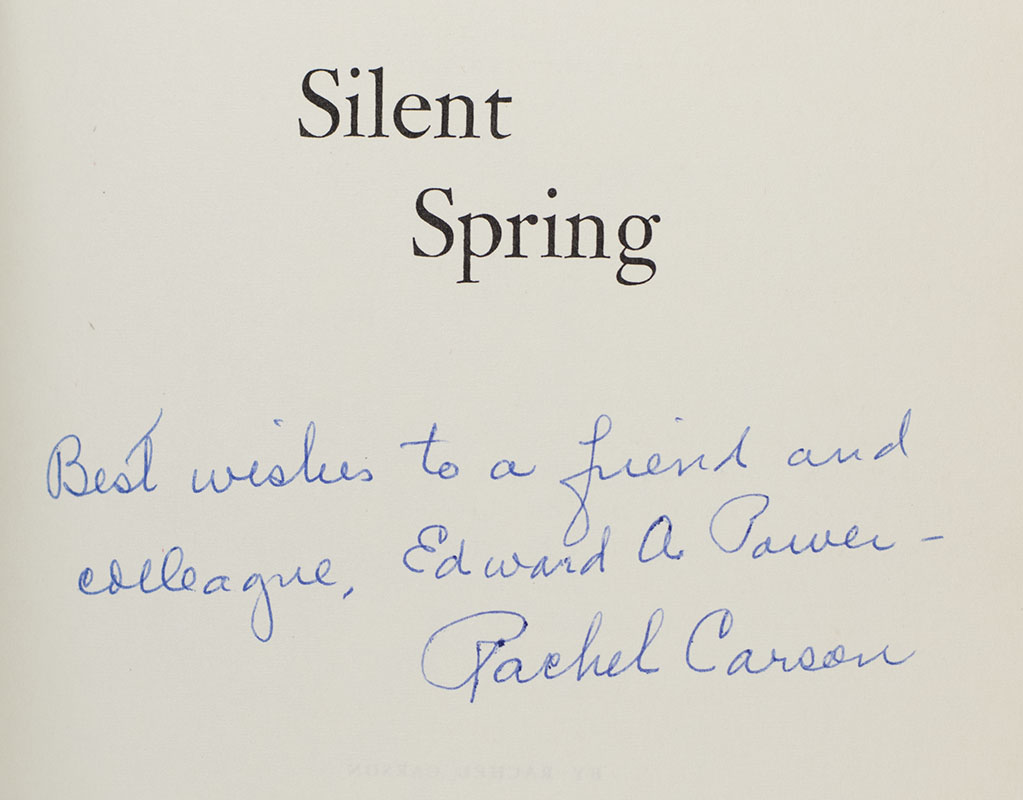 Silent
Spring
Best wishes to a friend and
colleague, Edward A. Power -
Rachel Carson
BY RACHEL CARSON